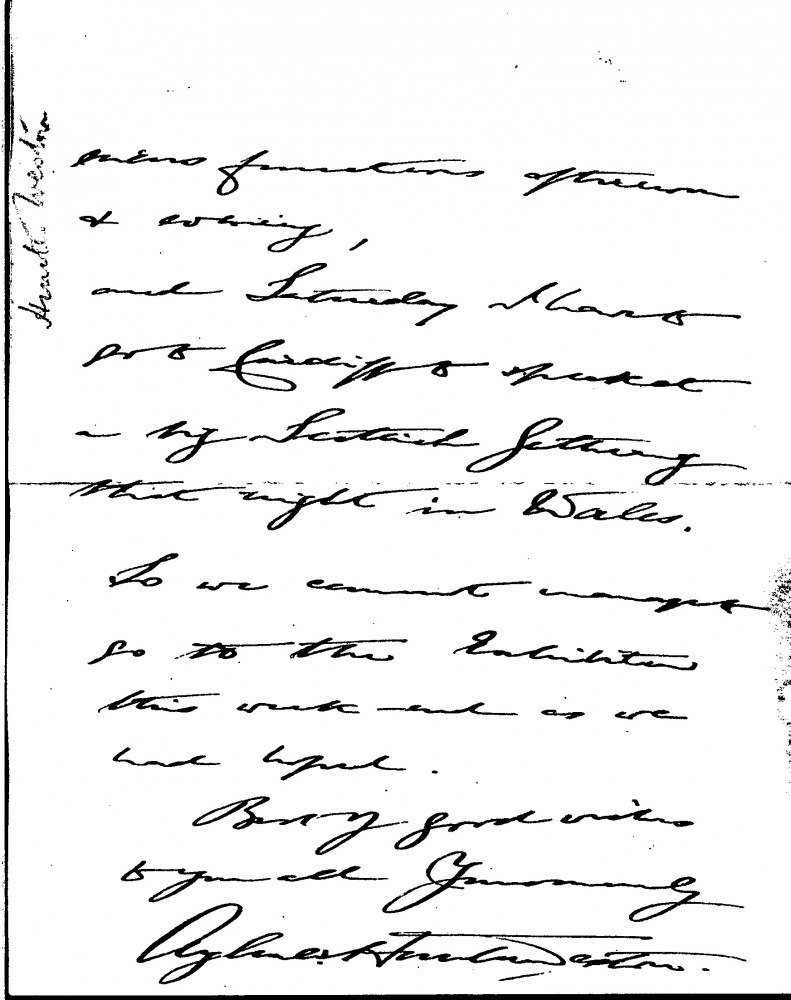 Hunter Weston
functions afternoon
& evening,
and Saturday I have to
go to Cardiff to speak at
a big Scottish Gathering
that night in Wales.
So we cannot manage to
go to the Exhibition
this week end as we
had hoped.
Best of good wishes
to you all Yours sincerely
Aylmer Hunter Weston.